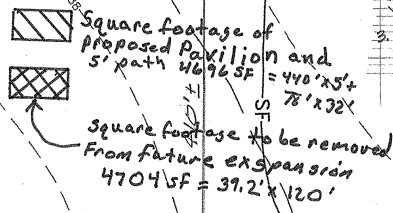 Square footage of
proposed Pavilion and
5' path 4696 SF = 440'x5'+
78'x32'
440'±
SF
3.
Square footage to be removed
From future exspansion
4704 SF = 39.2' x 120'